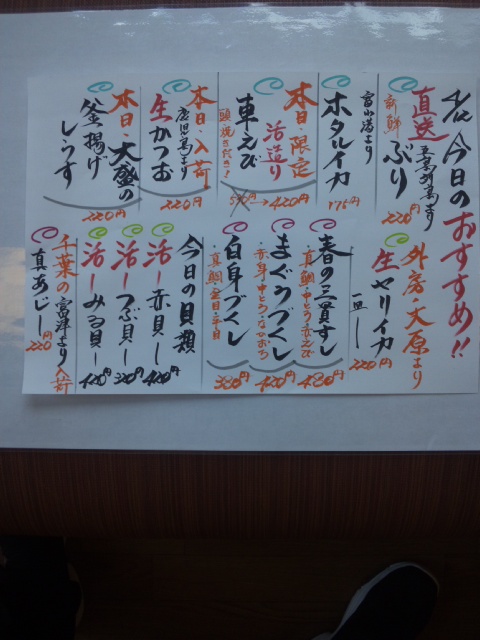 4/2 今日のおすすめ!!
直送
五島列島より
新鮮
ぶり
220円
富山湾より
ホタルイカ
175円
本日・限定
活造り
車えび
頭・焼き付き!
420円
本日・入荷
鹿児島より
生かつお
220円
本日・大盛の
釜揚げ
しらす
220円
外房・大原より
生ヤリイカ
一皿ー
220円
春の三貫すし
真鯛・中とろ・赤えび
480円
まぐろづくし
赤身・中とろ・なかおち
420円
白身づくし
真鯛・金目・平目
380円
今日の貝類
活ー赤貝ー
420円
活ーつぶ貝ー
320円
活ーみる貝ー
420円
千葉の富津より入荷
真あじー
220円